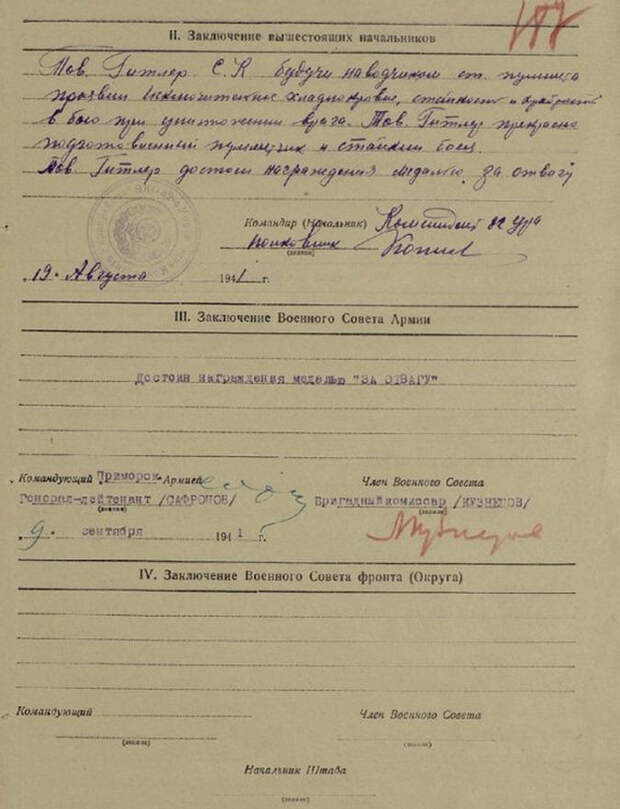 187
II. Заключение вышестоящих начальников
Тов. Гитлер С.К будучи наводчиком ст. пулемета
проявил исключительное хладнокровие, стойкость и храбрость
в бою при уничтожении врага. Тов. Гитлер прекрасно
подготовленный пулеметчик и стойкий боец.
Тов. Гитлер достоин награждения медалью за отвагу
Командир (Начальник) Комендант 82 Ура
полковник
(звание)
19. Августа 1941 г.
III. Заключение Военного Совета Армии
достоин награждения медалью "ЗА ОТВАГУ"
Командующий Приморск. Армией Член Военного Совета
Генерал-лейтенант /САФРОНОВ/ Бригадный комиссар /КУЗНЕЦОВ/
(звание) (звание)
9. сентября 1941 г.
IV. Заключение Военного Совета фронта (Округа)
Командующий Член Военного Совета
(звание) (звание)
Начальник Штаба
(звание)